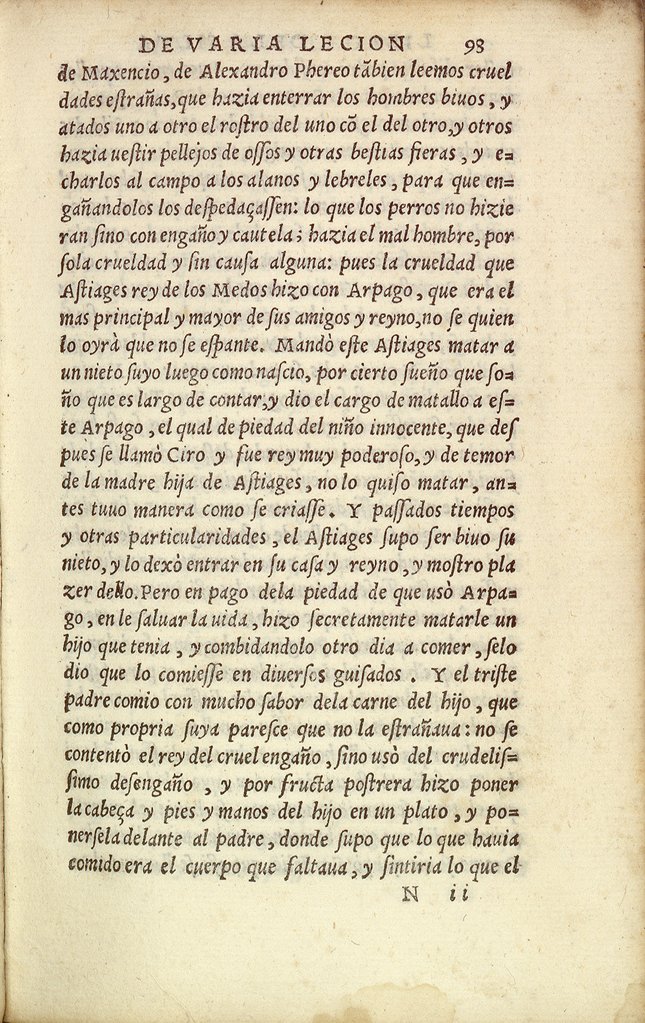 DE VARIA LECION 98
de Maxencio, de Alexandro Phereo tãbien leemos cruel
dades eſtrañas, que hazia enterrar los hombres biuos, y
atados uno a otro el roſtro del uno cõ el del otro, y otros
hazia ueſtir pellejos de oſſos y otras beſtias fieras, y e=
charlos al campo a los alanos y lebreles, para que en=
gañandolos los deſpedaçaſſen: lo que los perros no hizie
ran ſino con engaño y cautela; hazia el mal hombre, por
ſola crueldad y sin cauſa alguna: pues la crueldad que
Aſtiages rey de los Medos hizo con Arpago, que era el
mas principal y mayor de sus amigos y reyno, no se quien
lo oyrà que no se eſpante. Mandò eſte Aſtiages matar a
un nieto ſuyo luego como naſcio, por cierto ſueño que ſo=
ño que es largo de contar, y dio el cargo de matallo a eſ=
te Arpago, el qual de piedad del niño innocente, que deſ
pues se llamò Ciro y fue rey muy poderoso, y de temor
de la madre hija de Aſtiages, no lo quiſo matar, an=
tes tuuo manera como se criaſſe. Y paſſados tiempos
y otras particularidades, el Aſtiages supo ser biuo su
nieto, y lo dexò entrar en su caſa y reyno, y moſtro pla
zer dello. Pero en pago dela piedad de que usò Arpa=
go, en le ſaluar la uida, hizo ſecretamente matarle un
hijo que tenia, y combidandolo otro dia a comer, ſelo
dio que lo comieſſe en diuerſos guiſados. Y el triſte
padre comio con mucho ſabor dela carne del hijo, que
como propria ſuya pareſce que no la eſtrañaua: no se
contentò el rey del cruel engaño, ſino usò del crudeliſ=
ſimo deſengaño, y por fructa poſtrera hizo poner
la cabeça y pies y manos del hijo en un plato, y po=
nerſela delante al padre, donde supo que lo que hauia
comido era el cuerpo que faltaua, y ſintiria lo que el
N ii